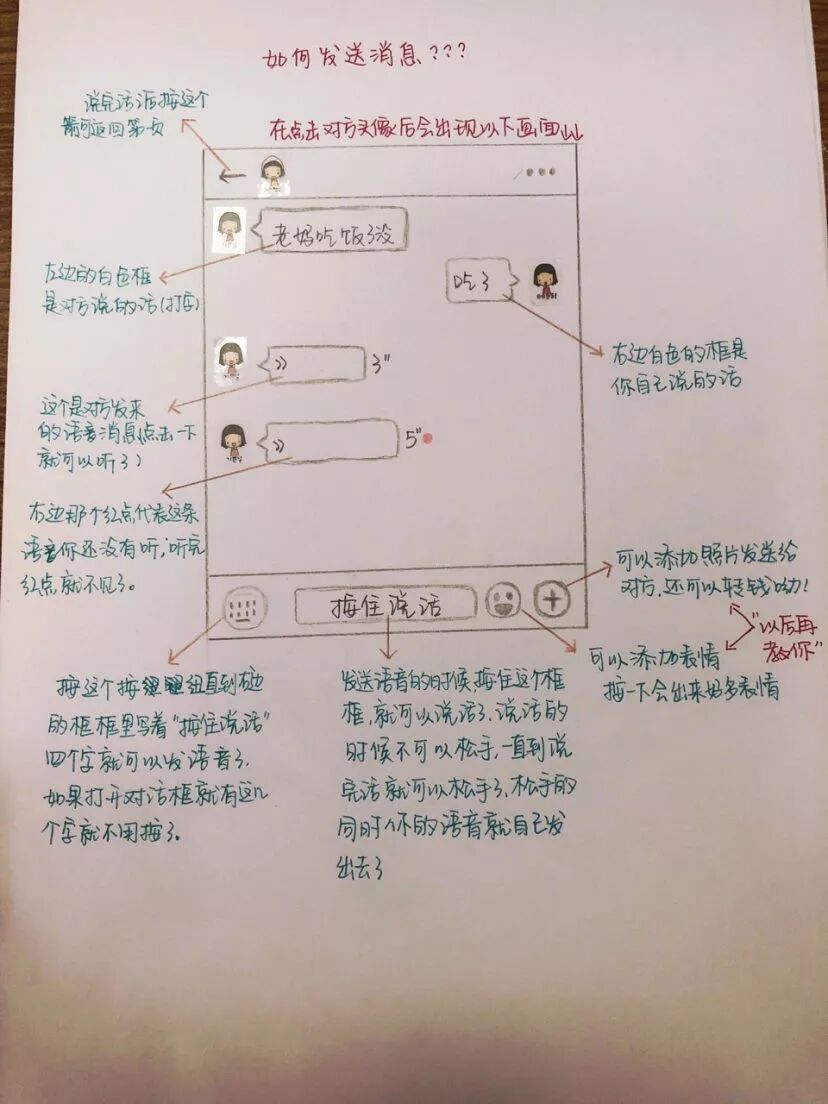 如何发送消息???
说完话后按这个
箭头返回第一页
在点击对方头像后会出现以下画面↓↓
←
...
老妈吃饭了没
左边的白色框
是对方说的话(打字)
吃了
右边白色的框是
你自己说的话
3"
这个是对方发来
的语音消息(点击一下
就可以听了)
5"
右边那个红点代表这条
语音你还没有听,听完
红点就不见了。
按住说话
可以添加照片发送给
对方,还可以转钱呦!
"以后再
教你"
可以添加表情
按一下会出来好多表情
按这个按钮直到右边
的框框里写着"按住说话"
四个字就可以发语音了,
如果打开对话框就有这几
个字就不用按了。
发送语音的时候,按住这个框
框,就可以说话了、说话的
时候不可以松手,一直到说
完话就可以松手了、松手的
同时你的语音就自己发
出去了